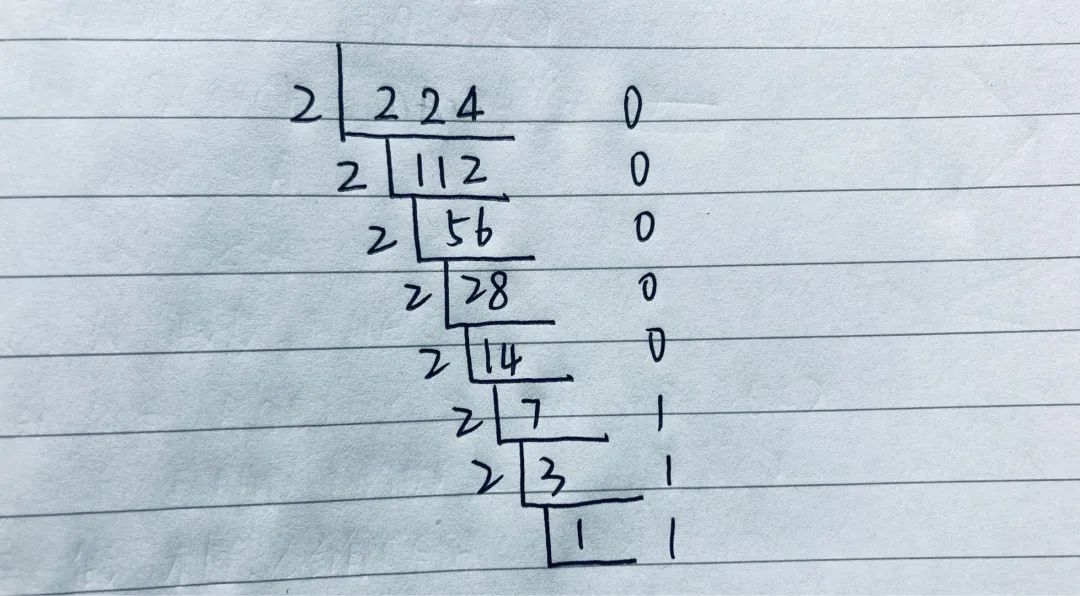 2 224 0
2 112 0
2 56 0
2 28 0
2 14 0
2 7 1
2 3 1
1 1